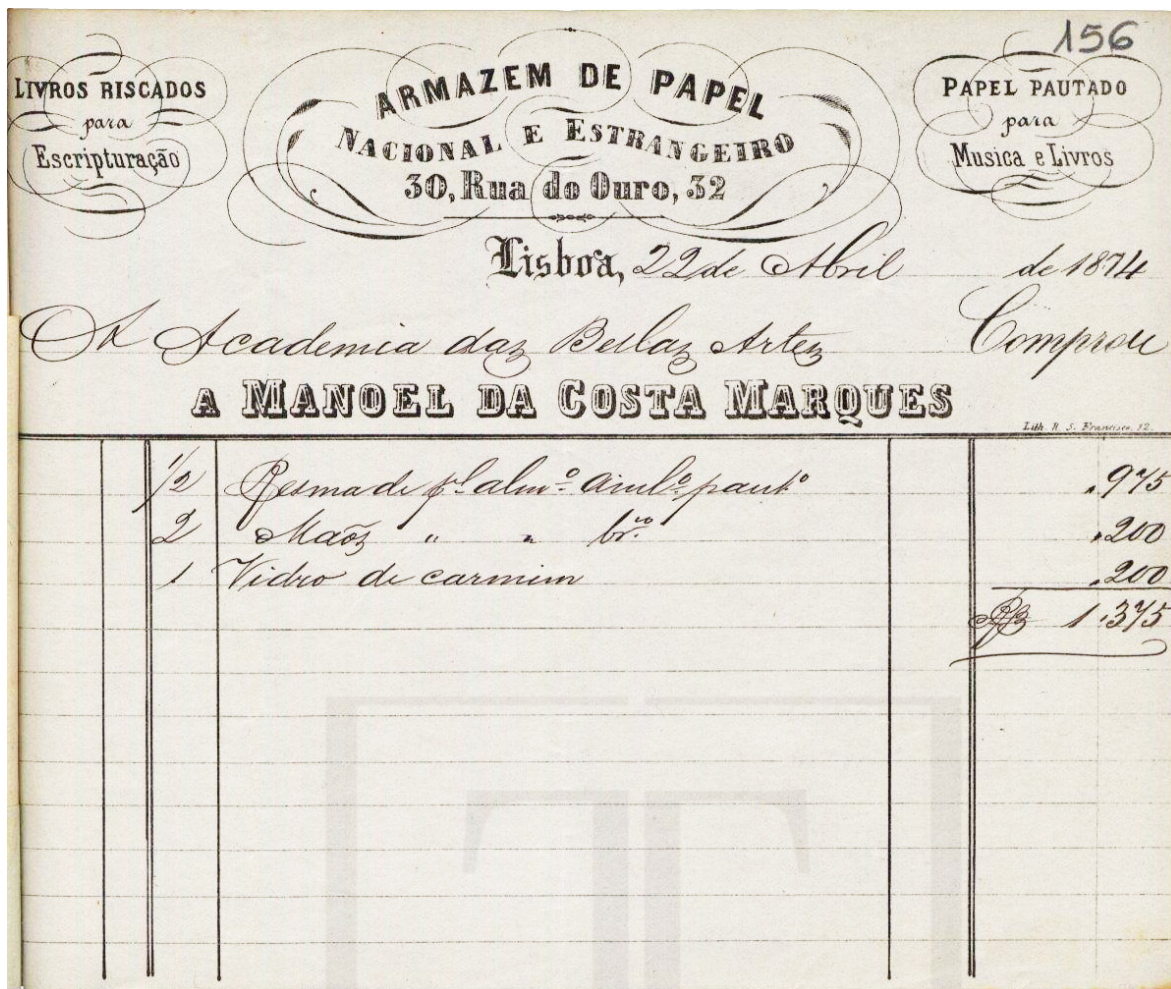 156
LIVROS RISCADOS
para
Escripturação
ARMAZEM DE PAPEL
NACIONAL E ESTRANGEIRO
30, Rua do Ouro, 32
PAPEL PAUTADO
para
Musica e Livros
Lisboa, 22 de Abril de 1874
A Academia das Bellas Artes Comprou
A MANOEL DA COSTA MARQUES
Lith. R. S. Francisco, 12.
1/2 Resma de pel almo paut.o .975
2 Mãos " " br.co .200
1 Vidro de carmim .200
Rs 1.375